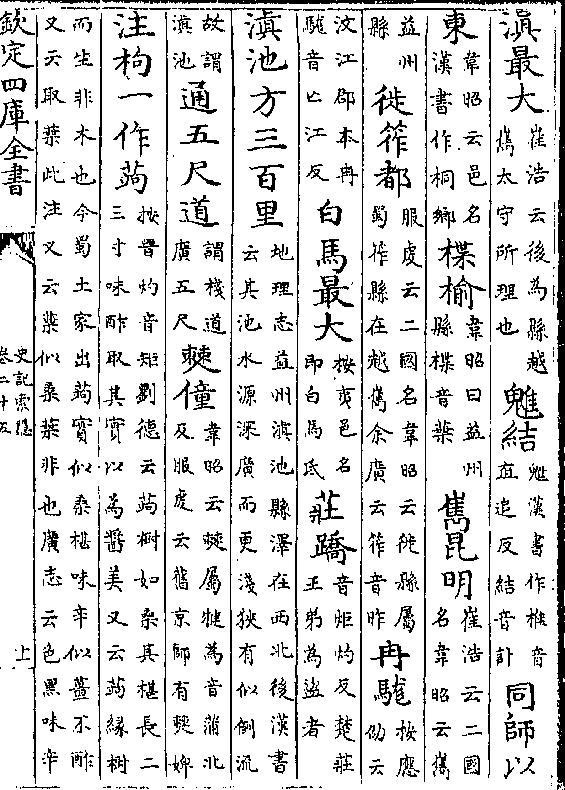 滇最大崔浩云後為縣越嶲太守所理也魋結魋漢書作椎音直追反結音計同師以
東韋昭云邑名漢書作桐鄉楪榆韋昭曰益州縣楪音葉嶲昆明崔浩云二國名韋昭云嶲
益州縣徙筰都服虔云二國名韋昭云徙縣屬蜀筰縣在越嶲余廣云筰音昨冉駹按應劭云
汶江郡本冉駹音亡江反白馬最大按夷邑名即白馬氐莊蹻音炬灼反楚莊王弟為盜者
滇池方三百里地理志益州滇池縣澤在西北後漢書云其池水源深廣而更淺狹有似倒流
故謂滇池通五尺道謂棧道廣五尺僰僮韋昭云僰屬犍為音蒲北反服虔云舊京師有僰婢
注枸一作蒟按晉灼音矩劉德云蒟樹如桑其椹長二三寸味酢取其實以為醬美又云蒟緣樹
而生非木也今蜀土家出蒟實似桑椹味辛似薑不酢又云取葉此注又云葉似桑葉非也廣志云色黑味辛
欽定四庫全書
史記索隱
卷二十五
上